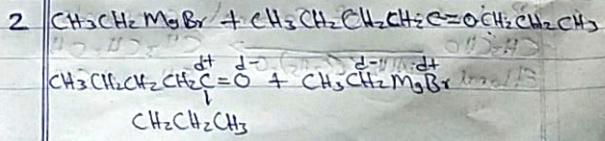 2 CH3CH2MgBr + CH3CH2CH2CH2C=OCH2CH2CH3
d+ d- d- d+
CH3CH2CH2CH2C=O + CH3CH2MgBr
CH2CH2CH3